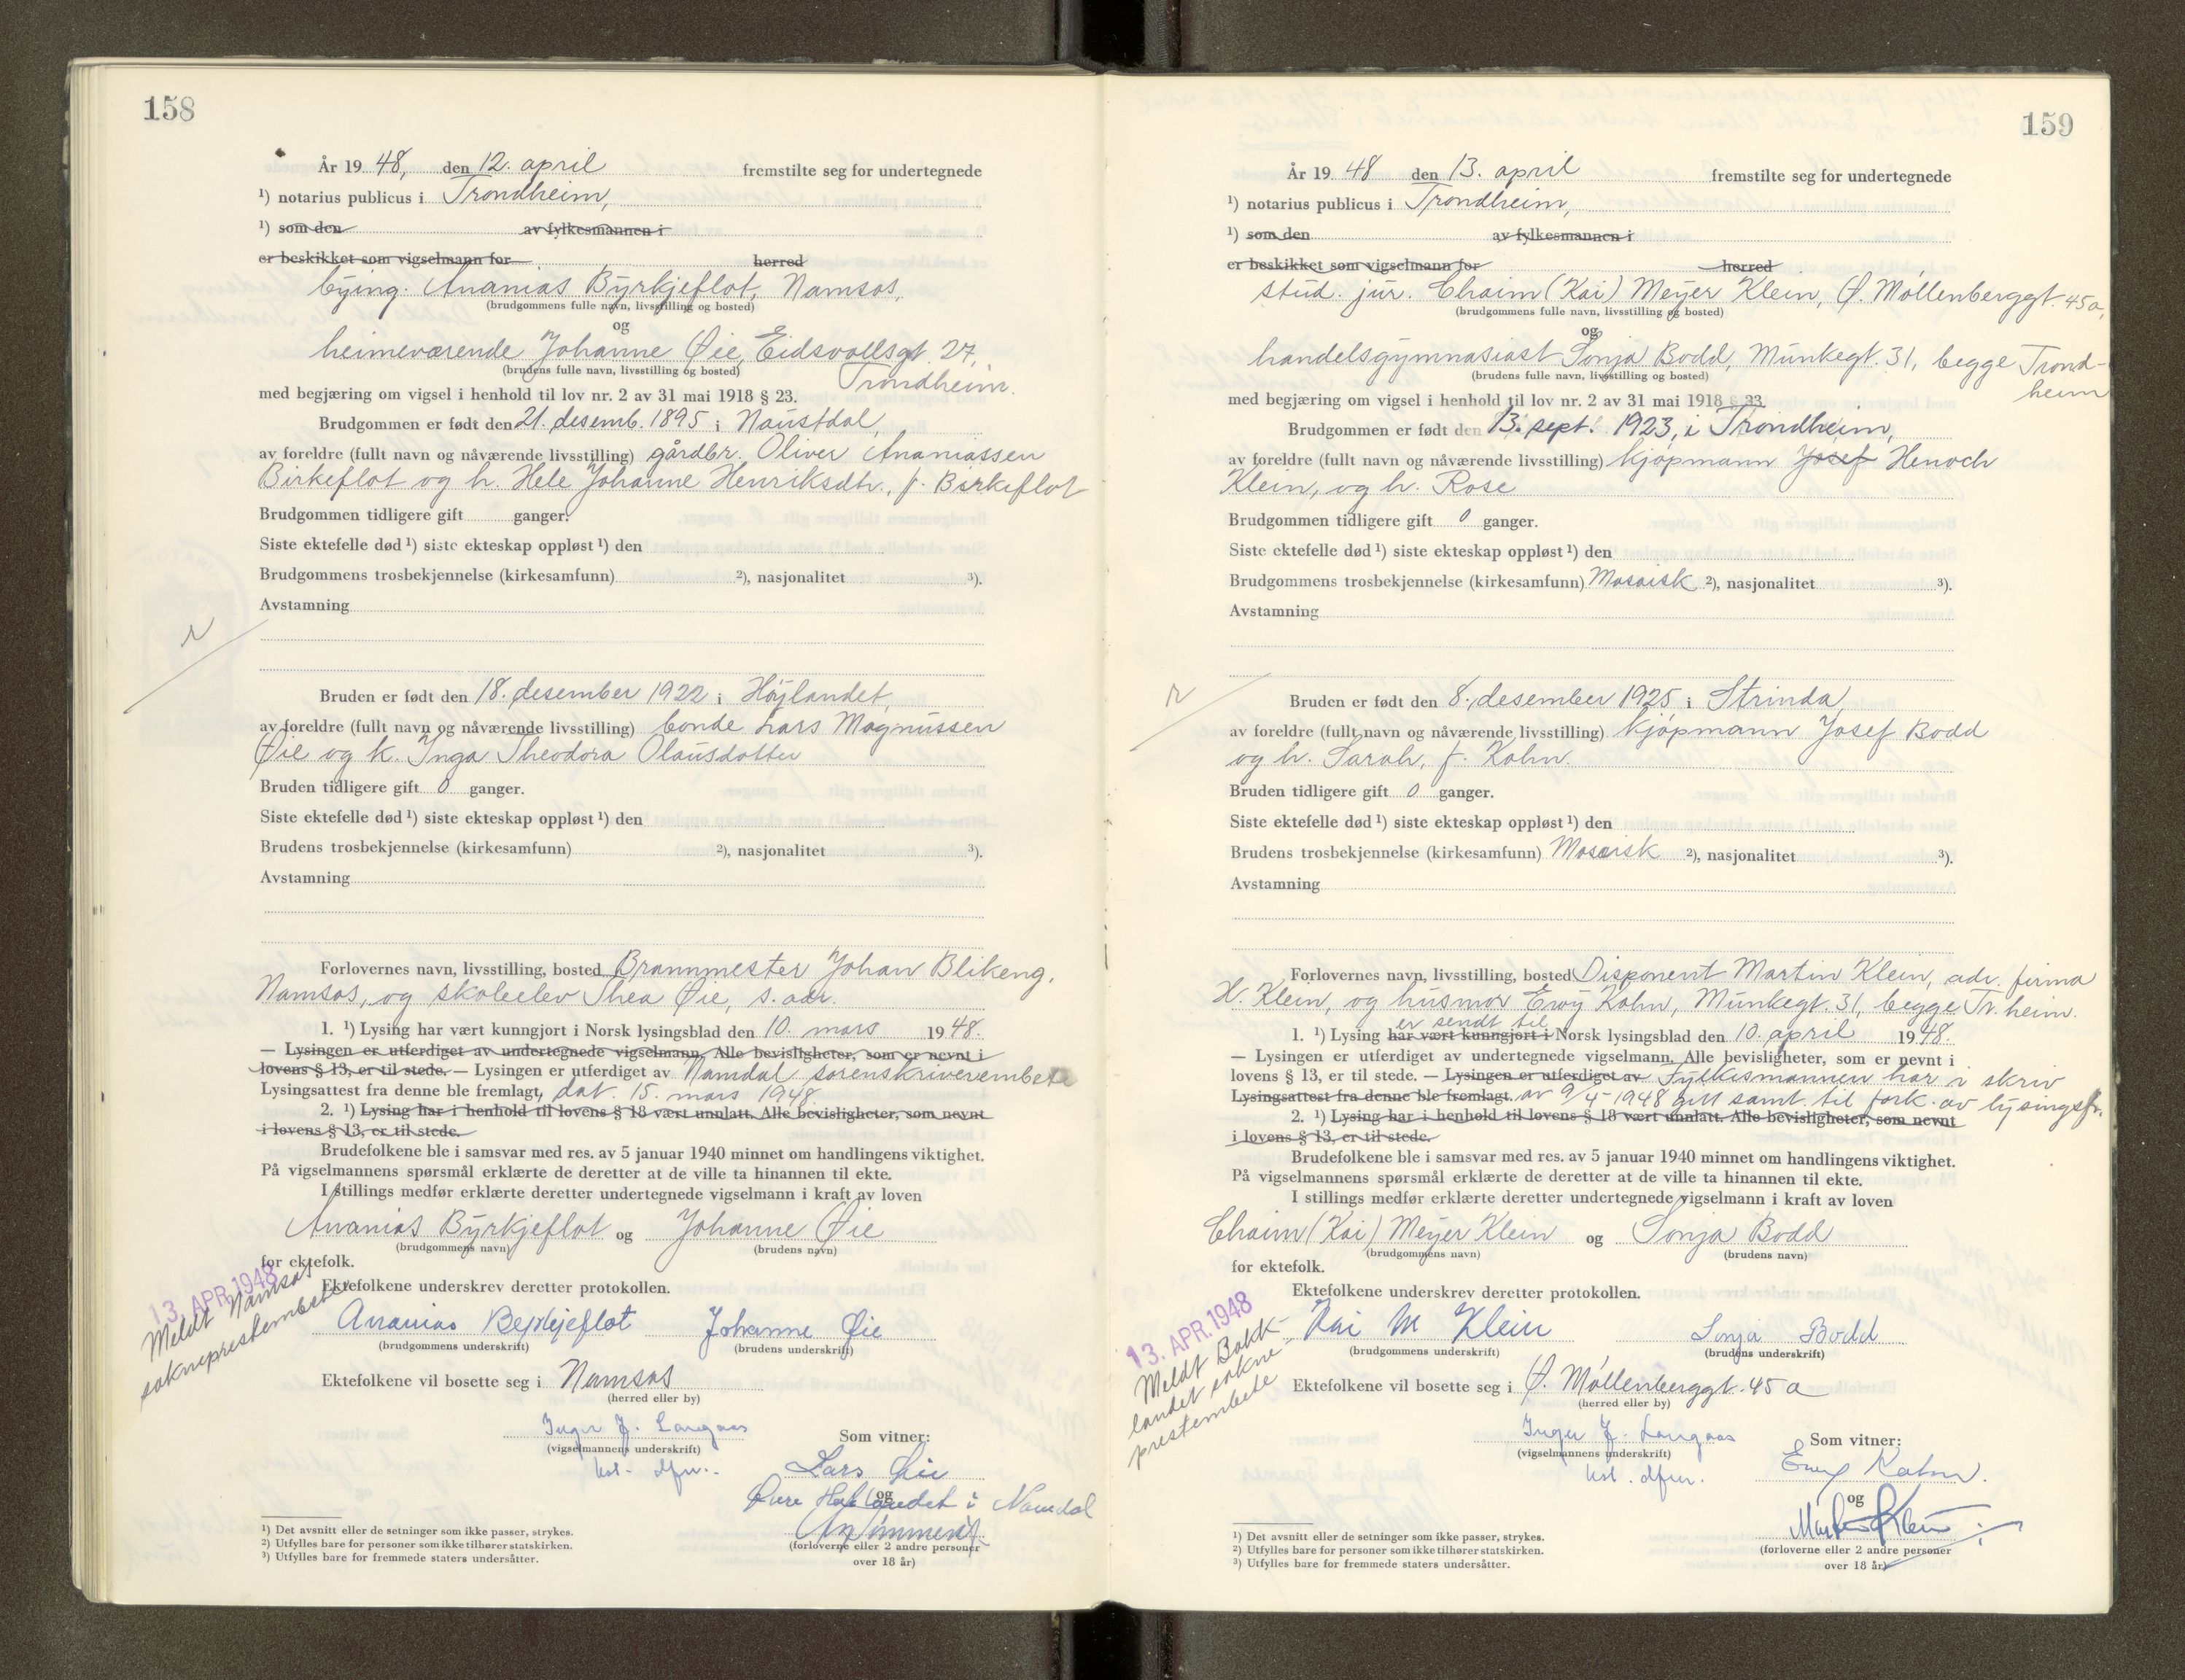 158
År 19 48, den 12. april fremstilte seg for undertegnede
¹) notarius publicus i Trondheim,
¹) som den av fylkesmannen i
er beskikket som vigselmann for herred
bying. Ananias Byrkjeflot, Namsos,
(brudgommens fulle navn, livsstilling og bosted)
og
heimeværende Johanne Øie, Eidsvollsgt. 27,
(brudens fulle navn, livsstilling og bosted)
Trondheim.
med begjæring om vigsel i henhold til lov nr. 2 av 31 mai 1918 § 23.
Brudgommen er født den 21. desemb. 1895 i Naustdal,
av foreldre (fullt navn og nåværende livsstilling) gårdbr. Oliver Ananiassen
Birkeflot og h. Hele Johanne Henriksdtr., f. Birkeflot
Brudgommen tidligere gift ganger.
Siste ektefelle død ¹) siste ekteskap oppløst ¹) den
Brudgommens trosbekjennelse (kirkesamfunn) ²), nasjonalitet ³).
Avstamning
Bruden er født den 18. desember 1922 i Høylandet,
av foreldre (fullt navn og nåværende livsstilling) bonde Lars Magnussen
Øie og k. Inga Theodora Olausdotter
Bruden tidligere gift 0 ganger.
Siste ektefelle død ¹) siste ekteskap oppløst ¹) den
Brudens trosbekjennelse (kirkesamfunn) ²), nasjonalitet ³).
Avstamning
Forlovernes navn, livsstilling, bosted Brannmester Johan Blikeng,
Namsos, og skoleelev Thea Øie, s. adr.
1. ¹) Lysing har vært kunngjort i Norsk lysingsblad den 10. mars 19 48.
— Lysingen er utferdiget av undertegnede vigselmann. Alle bevisligheter, som er nevnt i
lovens § 13, er til stede. — Lysingen er utferdiget av Namdal sorenskriverembete
Lysingsattest fra denne ble fremlagt, dat. 15. mars 1948.
2. ¹) Lysing har i henhold til lovens § 18 vært unnlatt. Alle bevisligheter, som nevnt
i lovens § 13, er til stede.
Brudefolkene ble i samsvar med res. av 5 januar 1940 minnet om handlingens viktighet.
På vigselmannens spørsmål erklærte de deretter at de ville ta hinannen til ekte.
I stillings medfør erklærte deretter undertegnede vigselmann i kraft av loven
Ananias Byrkjeflot og Johanne Øie
(brudgommens navn) (brudens navn)
for ektefolk.
13. APR. 1948
Meldt Namsos
sokneprestembete
Ektefolkene underskrev deretter protokollen.
Ananias Byrkjeflot Johanne Øie
(brudgommens underskrift) (brudens underskrift)
Ektefolkene vil bosette seg i Namsos
(herred eller by)
Inger J. Langaas
(vigselmannens underskrift)
kst. dfm.
Som vitner:
Lars Øie
og
Øvre Høylandet i Namdal
(forloverne eller 2 andre personer
over 18 år)
¹) Det avsnitt eller de setninger som ikke passer, strykes.
²) Utfylles bare for personer som ikke tilhører statskirken.
³) Utfylles bare for fremmede staters undersåtter.
159
År 19 48 den 13. april fremstilte seg for undertegnede
¹) notarius publicus i Trondheim,
¹) som den av fylkesmannen i
er beskikket som vigselmann for herred
stud. jur. Chaim (Kai) Meyer Klein, Ø. Møllenberggt. 45a,
(brudgommens fulle navn, livsstilling og bosted)
og
handelsgymnasiast Sonja Bodd, Munkegt. 31, begge Trond-
(brudens fulle navn, livsstilling og bosted)
heim
med begjæring om vigsel i henhold til lov nr. 2 av 31 mai 1918 § 23.
Brudgommen er født den 13. sept. 1923, i Trondheim,
av foreldre (fullt navn og nåværende livsstilling) kjøpmann Josef Henoch
Klein, og h. Rose
Brudgommen tidligere gift 0 ganger.
Siste ektefelle død ¹) siste ekteskap oppløst ¹) den
Brudgommens trosbekjennelse (kirkesamfunn) Mosaisk ²), nasjonalitet ³).
Avstamning
Bruden er født den 8. desember 1925 i Strinda,
av foreldre (fullt navn og nåværende livsstilling) kjøpmann Josef Bodd
og h. Sarah, f. Kahn.
Bruden tidligere gift 0 ganger.
Siste ektefelle død ¹) siste ekteskap oppløst ¹) den
Brudens trosbekjennelse (kirkesamfunn) Mosaisk ²), nasjonalitet ³).
Avstamning
Forlovernes navn, livsstilling, bosted Disponent Martin Klein, adr. firma
H. Klein, og husmor Ewy Kahn, Munkegt. 31, begge Tr.heim.
er sendt til
1. ¹) Lysing har vært kunngjort i Norsk lysingsblad den 10. april 19 48.
— Lysingen er utferdiget av undertegnede vigselmann. Alle bevisligheter, som er nevnt i
lovens § 13, er til stede. — Lysingen er utferdiget av Fylkesmannen har i skriv
Lysingsattest fra denne ble fremlagt. av 9/4-1948 gitt samt. til fork. av lysingsfr.
2. ¹) Lysing har i henhold til lovens § 18 vært unnlatt. Alle bevisligheter, som nevnt
i lovens § 13, er til stede.
Brudefolkene ble i samsvar med res. av 5 januar 1940 minnet om handlingens viktighet.
På vigselmannens spørsmål erklærte de deretter at de ville ta hinannen til ekte.
I stillings medfør erklærte deretter undertegnede vigselmann i kraft av loven
Chaim (Kai) Meyer Klein og Sonja Bodd
(brudgommens navn) (brudens navn)
for ektefolk.
13. APR. 1948
Meldt Bakk-
landet sokne-
prestembete
Ektefolkene underskrev deretter protokollen.
Kai M Klein Sonja Bodd
(brudgommens underskrift) (brudens underskrift)
Ektefolkene vil bosette seg i Ø. Møllenberggt. 45 a
(herred eller by)
Inger J. Langaas
(vigselmannens underskrift)
kst. dfm.
Som vitner:
Ewy Kahn.
og
Martin Klein
(forloverne eller 2 andre personer
over 18 år)
¹) Det avsnitt eller de setninger som ikke passer, strykes.
²) Utfylles bare for personer som ikke tilhører statskirken.
³) Utfylles bare for fremmede staters undersåtter.